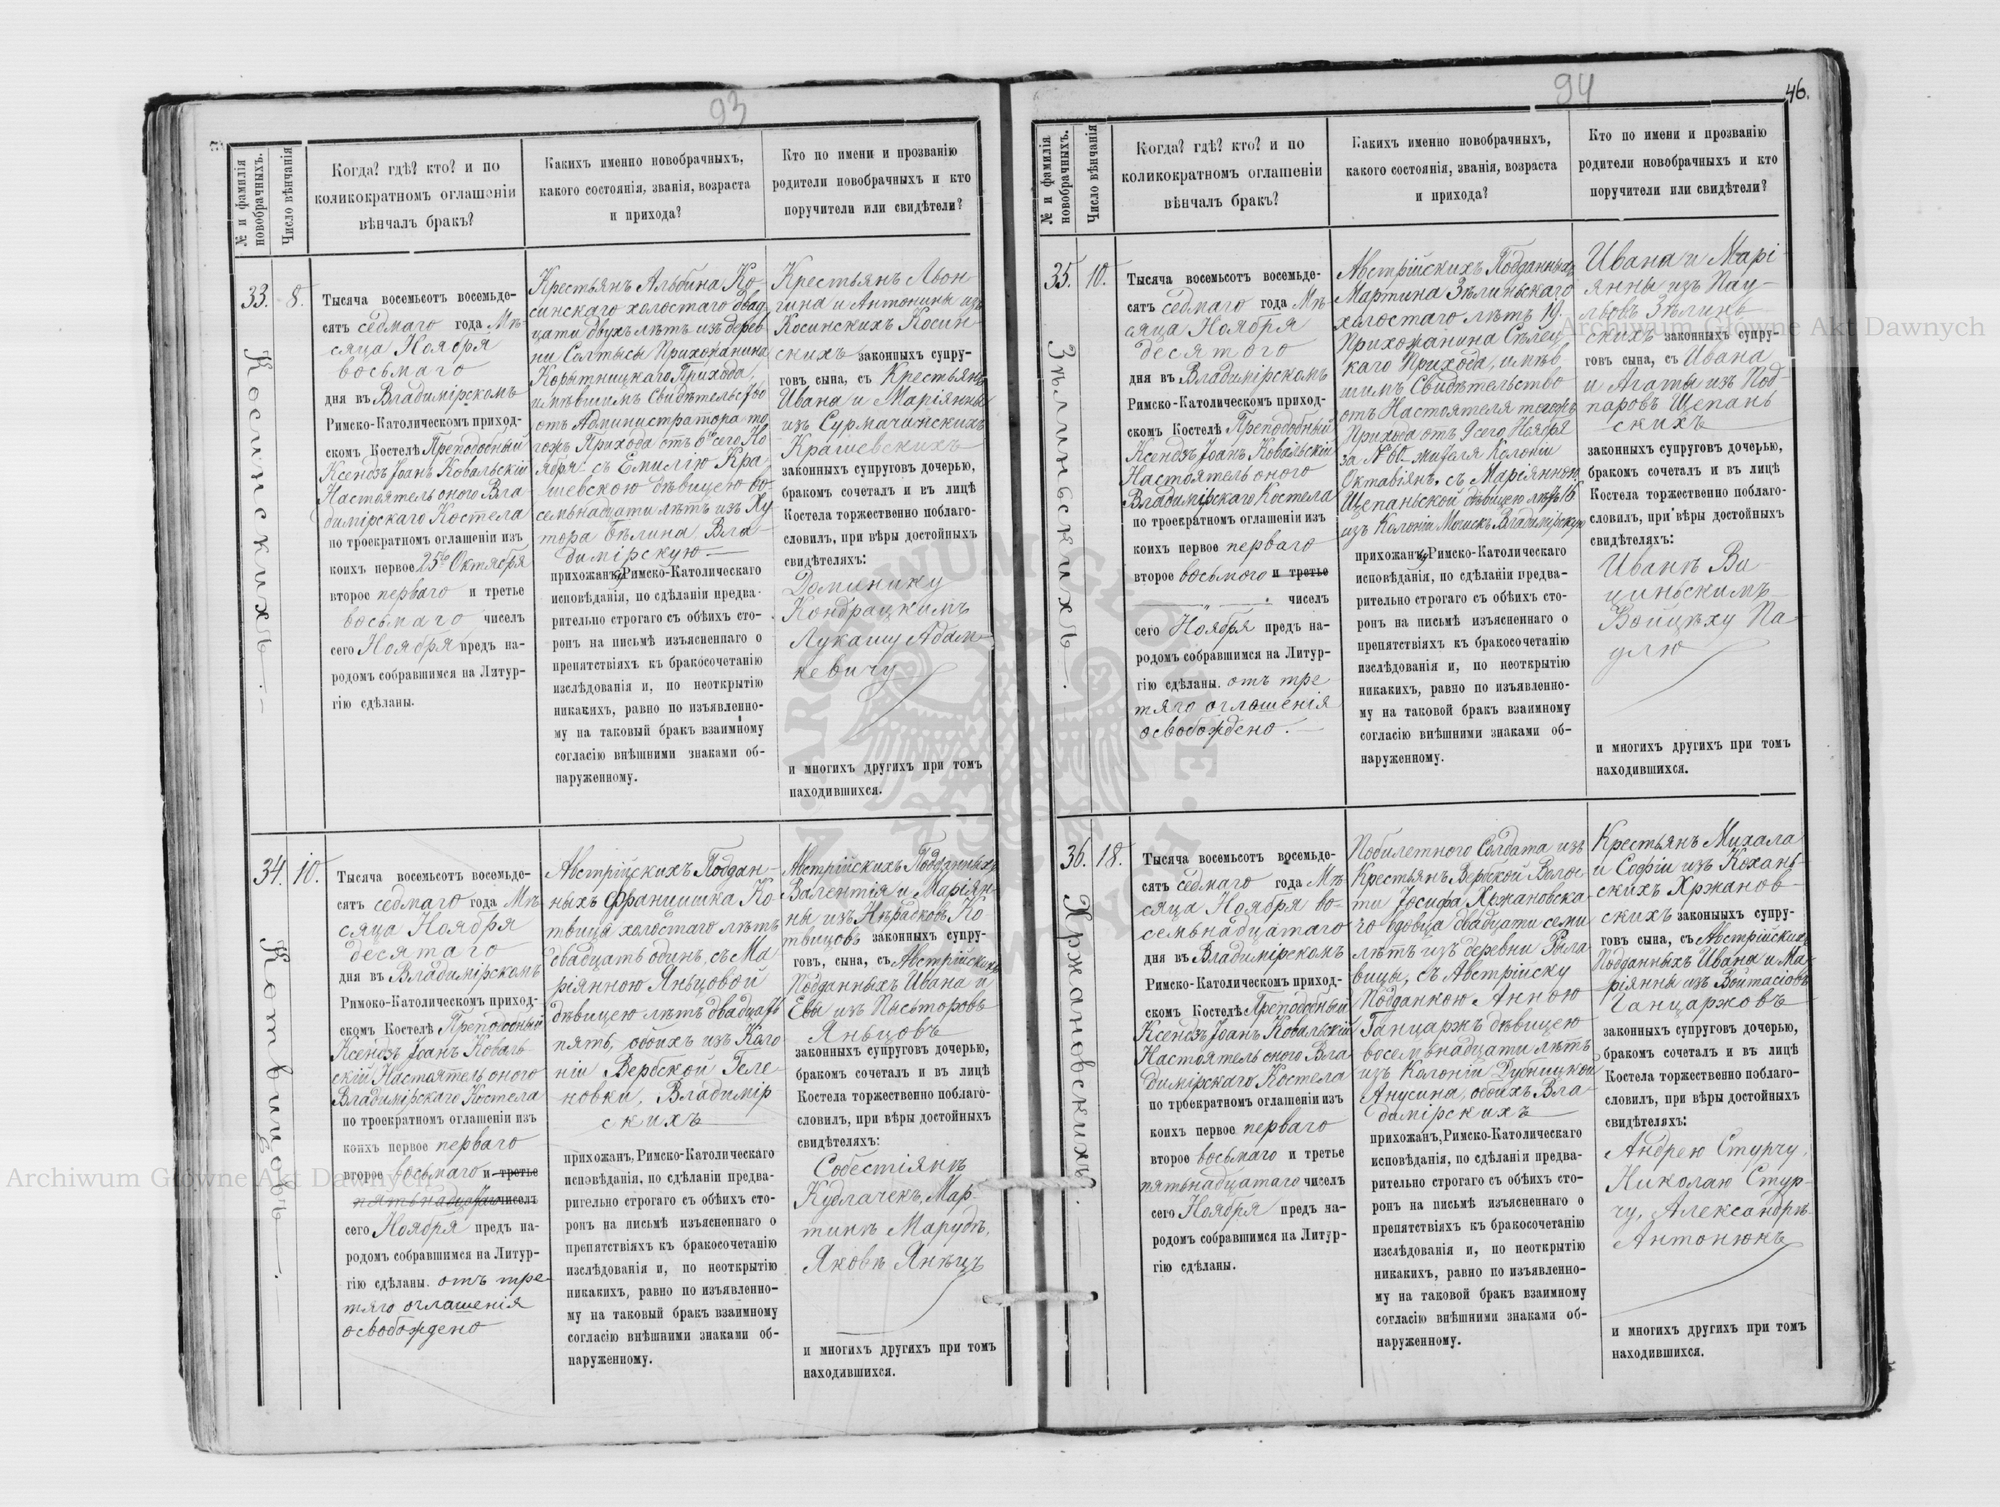 93
№ и фамилія
новобрачныхъ.
Число вѣнчанія
Когда? гдѣ? кто? и по
коликократномъ оглашеніи
вѣнчалъ бракъ?
Какихъ именно новобрачныхъ,
какого состоянія, званія, возраста
и прихода?
Кто по имени и прозванію
родители новобрачныхъ и кто
поручители или свидѣтели?
33.
8.
Косинскихъ
Тысяча восемьсотъ восемьде-
сятъ седмаго года Мѣ-
сяца Ноября
восьмаго
дня въ Владимірскомъ
Римско-Католическомъ приход-
скомъ Костелѣ Преподобный
Ксендзъ Іоанъ Ковальскій
Настоятель оного Вла
димірскаго Костела
по троекратномъ оглашеніи изъ
коихъ первое 25го Октября
второе перваго и третье
восьмаго чиселъ
сего Ноября предъ на-
родомъ собравшимся на Литур-
гію сдѣланы.
Крестьянъ Альбина Ко-
синскаго холостаго двад
цати двухъ лѣтъ изъ дерев
ни Солтысы Прихожанина
Корытницкаго Прихода,
имѣвшимъ Свидѣтельство
отъ Администратора то-
гожъ Прихода отъ 6го сего Но
ября съ Емилію Кра-
шевскою дѣвицею во
семьнадцати лѣтъ изъ Ху
тора Бѣлина, Вла-
димірскую
прихожанъ, Римско-Католическаго
исповѣданія, по сдѣланіи предва-
рительно строгаго съ обѣихъ сто-
ронъ на письмѣ изъясненнаго о
препятствіяхъ къ бракосочетанію
изслѣдованія и, по неоткрытію
никакихъ, равно по изъявленно-
му на таковый бракъ взаимному
согласію внѣшними знаками об-
наруженному.
Крестьянъ Лѣон-
гина и Антонины изъ
Косинскихъ Косин-
скихъ законныхъ супру-
говъ сына, съ Крестьянъ
Ивана и Маріянны
изъ Сурмачинскихъ
Крашевскихъ
законныхъ супруговъ дочерью,
бракомъ сочеталъ и въ лицѣ
Костела торжественно поблаго-
словилъ, при вѣры достойныхъ
свидѣтеляхъ:
Доминику
Кондрацкимъ
Лукашу Адам-
кевичу
и многихъ другихъ при томъ
находившихся.
34.
10.
Котвицовъ
Тысяча восемьсотъ восемьде-
сятъ седмаго года Мѣ
сяца Ноября
десятаго
дня въ Владимірскомъ
Римоко-Католическомъ приход-
скомъ Костелѣ Преподобный
Ксендзъ Іоанъ Коваль-
скій Настоятель оного
Владимірскаго Костела
по троекратномъ оглашеніи изъ
коихъ первое перваго
второе восьмаго и третье
пятьнадцатаго чиселъ
сего Ноября предъ на-
родомъ собравшимся на Литур-
гію сдѣланы. отъ тре
тяго оглашенія
освобождено
Австрійскихъ Поддан-
ныхъ Францишка Ко
твица холостаго лѣтъ
двадцать одинъ, съ Ма
ріянною Яньцовой
дѣвицею лѣтъ двадцать
пять, обоихъ изъ Коло
ніи Вербской Геле-
новки, Владимір
скихъ
прихожан, Римско-Католическаго
исповѣданія, по сдѣланіи предва-
рительно строгаго съ обѣихъ сто-
ронъ на письмѣ изъясненнаго о
препятствіяхъ къ бракосочетанію
изслѣдованія и, по неоткрытію
никакихъ, равно по изъявленно-
му на таковый бракъ взаимному
согласію внѣшними знаками об-
наруженному.
Австрійскихъ Подданныхъ
Валентія и Маріян-
ны изъ Ко
твицовъ законныхъ супру-
говъ, сына, съ Австрійскихъ
Подданныхъ Ивана и
Евы изъ Пысьторовъ
Яньцовъ
законныхъ супруговъ дочерью,
бракомъ сочеталъ и въ лицѣ
Костела торжественно поблаго-
словилъ, при вѣры достойныхъ
свидѣтеляхъ:
Собестіянъ
Кудлачекъ, Мар-
тинъ Марудъ,
Яковъ Янѣцъ
и многихъ другихъ при томъ
находившихся.
94
46.
№ и фамилія
новобрачныхъ.
Число вѣнчанія
Когда? гдѣ? кто? и по
коликократномъ оглашеніи
вѣнчалъ бракъ?
Какихъ именно новобрачныхъ,
какого состоянія, званія, возраста
и прихода?
Кто по имени и прозванію
родители новобрачныхъ и кто
поручители или свидѣтели?
35.
10.
Зѣлиньскихъ
Тысяча восемьсотъ восемьде-
сятъ седмаго года Мѣ-
сяца Ноября
десятого
дня въ Владимірскомъ
Римско-Католическомъ приход-
скомъ Костелѣ Преподобный
Ксендзъ Іоанъ Ковальскій
Настоятель оного
Владимірскаго Костела
по троекратномъ оглашеніи изъ
коихъ первое перваго
второе восьмого и третье
чиселъ
сего Ноября предъ на-
родомъ собравшимся на Литур-
гію сдѣланы. отъ тре
тяго оглашенія
освобождено.
Австрійскихъ Подданныхъ
Мартина Зѣлиньскаго
холостаго лѣтъ 19.
Прихожанина Сѣлец
каго Прихода, имѣв-
шимъ Свидѣтельство
отъ Настоятеля тогожъ
Прихода отъ 9 сего Ноября
за №60 жителя Колоніи
Октавіянъ, съ Маріянною
Щепаньской дѣвицею лѣтъ 16
изъ Колоніи Владимірскую
прихожанъ, Римско-Католическаго
исповѣданія, по сдѣланіи предва-
рительно строгаго съ обѣихъ сто-
ронъ на письмѣ изъясненнаго о
препятствіяхъ къ бракосочетанію
изслѣдованія и, по неоткрытію
никакихъ, равно по изъявленно-
му на таковой бракъ взаимному
согласію внѣшними знаками об-
наруженному.
Ивана и Марі-
янны изъ Пау-
льовъ Зѣлинь-
скихъ законныхъ супру-
говъ сына, съ Ивана
и Агаты изъ Под-
паровъ Щепань
скихъ
законныхъ супруговъ дочерью,
бракомъ сочеталъ и въ лицѣ
Костела торжественно поблаго-
словилъ, при вѣры достойныхъ
свидѣтеляхъ:
Иванъ Ви
циньскимъ
Войцѣху Па-
длю
и многихъ другихъ при томъ
находившихся.
36.
18.
Хржановскихъ
Тысяча восемьсотъ восемьде-
сятъ седмаго года Мѣ
сяца Ноября во-
семьнадцатаго
дня въ Владимірскомъ
Римско-Католическомъ приход-
скомъ Костелѣ Преподобный
Ксендзъ Іоанъ Ковальскій
Настоятель оного Вла
димірскаго Костела
по троекратномъ оглашеніи изъ
коихъ первое перваго
второе восьмаго и третье
пятьнадцатаго чиселъ
сего Ноября предъ на-
родомъ собравшимся на Литур-
гію сдѣланы.
Побилетного Солдата изъ
Крестьянъ Вербской Волос-
ти Іосифа Хржановска
го вдовца двадцати семи
лѣтъ изъ деревни Рыла
вицы, съ Австрійску
Подданкою Анною
Ганцаржъ дѣвицею
восемьнадцати лѣтъ
изъ Колоніи Дубницкой
Анусина, обоихъ Вла-
димірскихъ
прихожан, Римско-Католическаго
исповѣданія, по сдѣланіи предва-
рительно строгаго съ обѣихъ сто-
ронъ на письмѣ изъясненнаго о
препятствіяхъ къ бракосочетанію
изслѣдованія и, по неоткрытію
никакихъ, равно по изъявленно-
му на таковый бракъ взаимному
согласію внѣшними знаками об-
наруженному.
Крестьянъ Михала
и Софіи изъ Кохань-
скихъ Хржанов-
скихъ законныхъ супру-
говъ сына, съ Австрійскихъ
Подданныхъ Ивана и Ма-
ріянны изъ Войтасіовъ
Ганцаржовъ
законныхъ супруговъ дочерью,
бракомъ сочеталъ и въ лицѣ
Костела торжественно поблаго-
словилъ, при вѣры достойныхъ
свидѣтеляхъ:
Андрею Стурчу,
Николаю Стур-
чу, Александръ
Антонюкъ
и многихъ другихъ при томъ
находившихся.
Archiwum Główne Akt Dawnych
Archiwum Główne Akt Dawnych